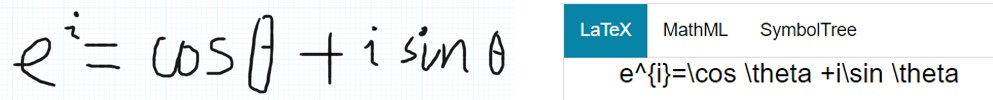 e^i = cosθ + i sin θ
LaTeX MathML SymbolTree
e^{i}=\cos \theta +i\sin \theta